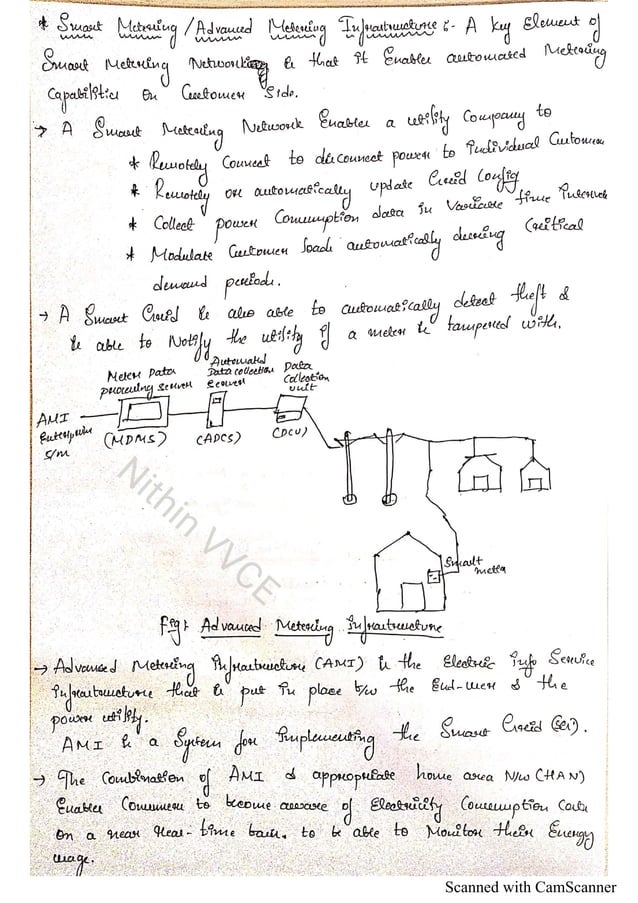 * Smart Metering / Advanced Metering Infrastructure :- A key Element of
Smart Metering Networking is that it Enables automated Metering
Capabilities on Customer Side.
→ A Smart Metering Network Enables a utility Company to
* Remotely Connect to disconnect power to Individual Customers
* Remotely or automatically update Grid Config
* Collect power Consumption data in Variable time Intervals
* Modulate Customer loads automatically during Critical
demand periods.
→ A Smart Grid is also able to automatically detect theft &
is able to Notify the utility if a meter is tampered with.
Meter Data processing server
Automated Data collection server
Data Collection unit
AMI Enterprise S/m
(MDMS)
(ADCS)
(DCU)
Smart meter
Nithin VVCE
Fig: Advanced Metering Infrastructure
→ Advanced Metering Infrastructure (AMI) is the Electric Info Service
Infrastructure that is put in place b/w the End-user & the
power utility.
AMI is a System for Implementing the Smart Grid (SG).
→ The Combination of AMI & appropriate home area N/w (HAN)
Enables Consumers to become aware of Electricity Consumption Costs
on a near real-time basis, to be able to Monitor their Energy
usage.
Scanned with CamScanner